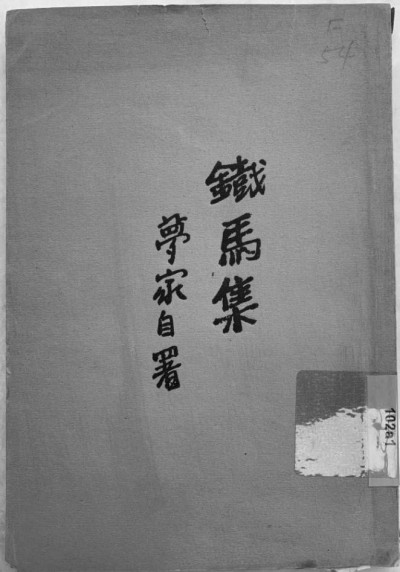 鐵馬集
夢家自署
54
102a1